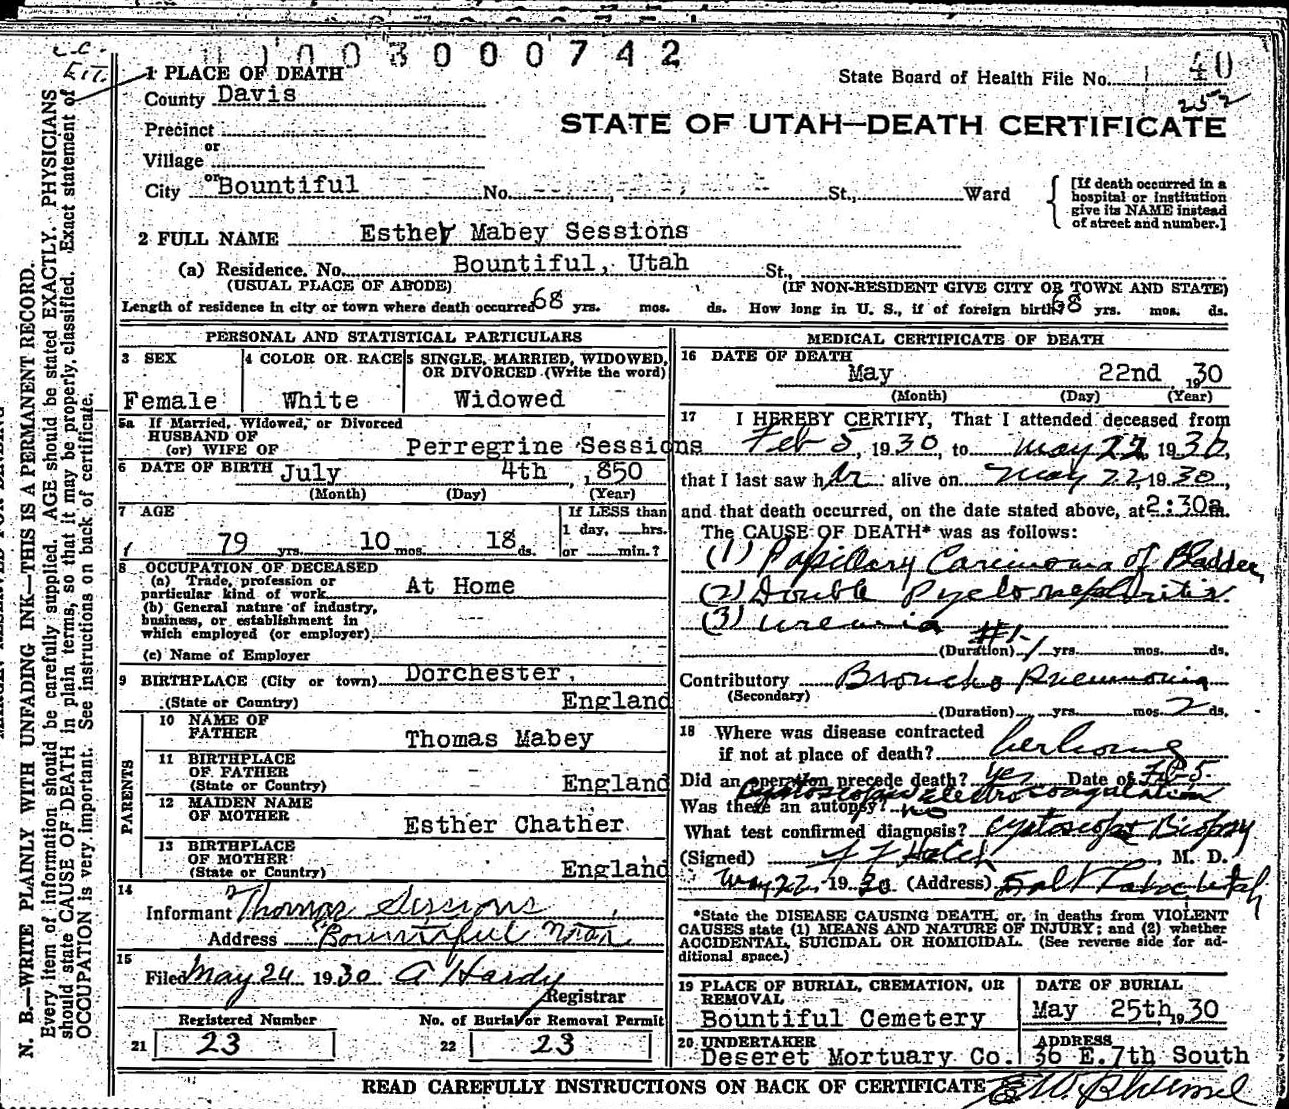 0003000742
1 PLACE OF DEATH
State Board of Health File No. 40
County Davis
252
STATE OF UTAH—DEATH CERTIFICATE
Precinct
or
Village
or
City Bountiful No. St., Ward
[If death occurred in a hospital or institution give its NAME instead of street and number.]
2 FULL NAME Esther Mabey Sessions
(a) Residence. No. Bountiful, Utah St.,
(USUAL PLACE OF ABODE) (IF NON-RESIDENT GIVE CITY OR TOWN AND STATE)
Length of residence in city or town where death occurred 68 yrs. mos. ds. How long in U. S., if of foreign birth? 68 yrs. mos. ds.
PERSONAL AND STATISTICAL PARTICULARS
3 SEX
Female
4 COLOR OR RACE
White
5 SINGLE, MARRIED, WIDOWED,
OR DIVORCED (Write the word)
Widowed
5a If Married, Widowed, or Divorced
HUSBAND OF
(or) WIFE OF Perregrine Sessions
6 DATE OF BIRTH July 4th, 1850
(Month) (Day) (Year)
7 AGE
79 yrs. 10 mos. 18 ds.
If LESS than
1 day, hrs.
or min.?
8 OCCUPATION OF DECEASED
(a) Trade, profession or
particular kind of work At Home
(b) General nature of industry,
business, or establishment in
which employed (or employer)
(c) Name of Employer
9 BIRTHPLACE (City or town) Dorchester,
(State or Country) England
PARENTS
10 NAME OF
FATHER Thomas Mabey
11 BIRTHPLACE
OF FATHER
(State or Country) England
12 MAIDEN NAME
OF MOTHER Esther Chather
13 BIRTHPLACE
OF MOTHER
(State or Country) England
14
Informant Thomas Sessions
Address Bountiful Utah
15
Filed May 24 1930 A Hardy
Registrar
Registered Number No. of Burial or Removal Permit
21 23 22 23
MEDICAL CERTIFICATE OF DEATH
16 DATE OF DEATH
May 22nd 1930
(Month) (Day) (Year)
17 I HEREBY CERTIFY, That I attended deceased from
Feb 5, 1930, to May 22, 1930,
that I last saw her alive on May 22, 1930,
and that death occurred, on the date stated above, at 2:30a.
The CAUSE OF DEATH* was as follows:
(1) Papillary Carcinoma of Bladder
(2) Double Pyelonephritis
(3) uremia
#1-
(Duration) 1 yrs. mos. ds.
Contributory Broncho Pneumonia
(Secondary)
(Duration) yrs. mos. 2 ds.
18 Where was disease contracted
if not at place of death? her home
Did an operation precede death? Yes Date of Feb 5-
Cystoscopic electro coagulation
Was there an autopsy? no
What test confirmed diagnosis? Cystoscopy Biopsy
(Signed) Hatch, M. D.
May 22, 1930 (Address) Salt Lake Utah
*State the DISEASE CAUSING DEATH, or, in deaths from VIOLENT
CAUSES state (1) MEANS AND NATURE OF INJURY; and (2) whether
ACCIDENTAL, SUICIDAL OR HOMICIDAL. (See reverse side for ad-
ditional space.)
19 PLACE OF BURIAL, CREMATION, OR
REMOVAL
Bountiful Cemetery
DATE OF BURIAL
May 25th, 1930
20 UNDERTAKER
Deseret Mortuary Co.
ADDRESS
36 E. 7th South
READ CAREFULLY INSTRUCTIONS ON BACK OF CERTIFICATE
N. B.—WRITE PLAINLY WITH UNFADING INK—THIS IS A PERMANENT RECORD.
Every item of information should be carefully supplied. AGE should be stated EXACTLY. PHYSICIANS
should state CAUSE OF DEATH in plain terms, so that it may be properly classified. Exact statement of
OCCUPATION is very important. See instructions on back of certificate.